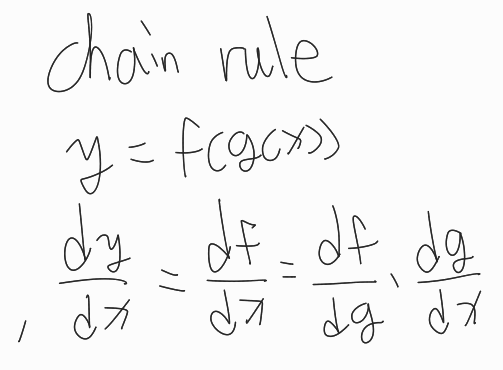 chain rule
y = f(g(x))
, dy/dx = df/dx = df/dg · dg/dx